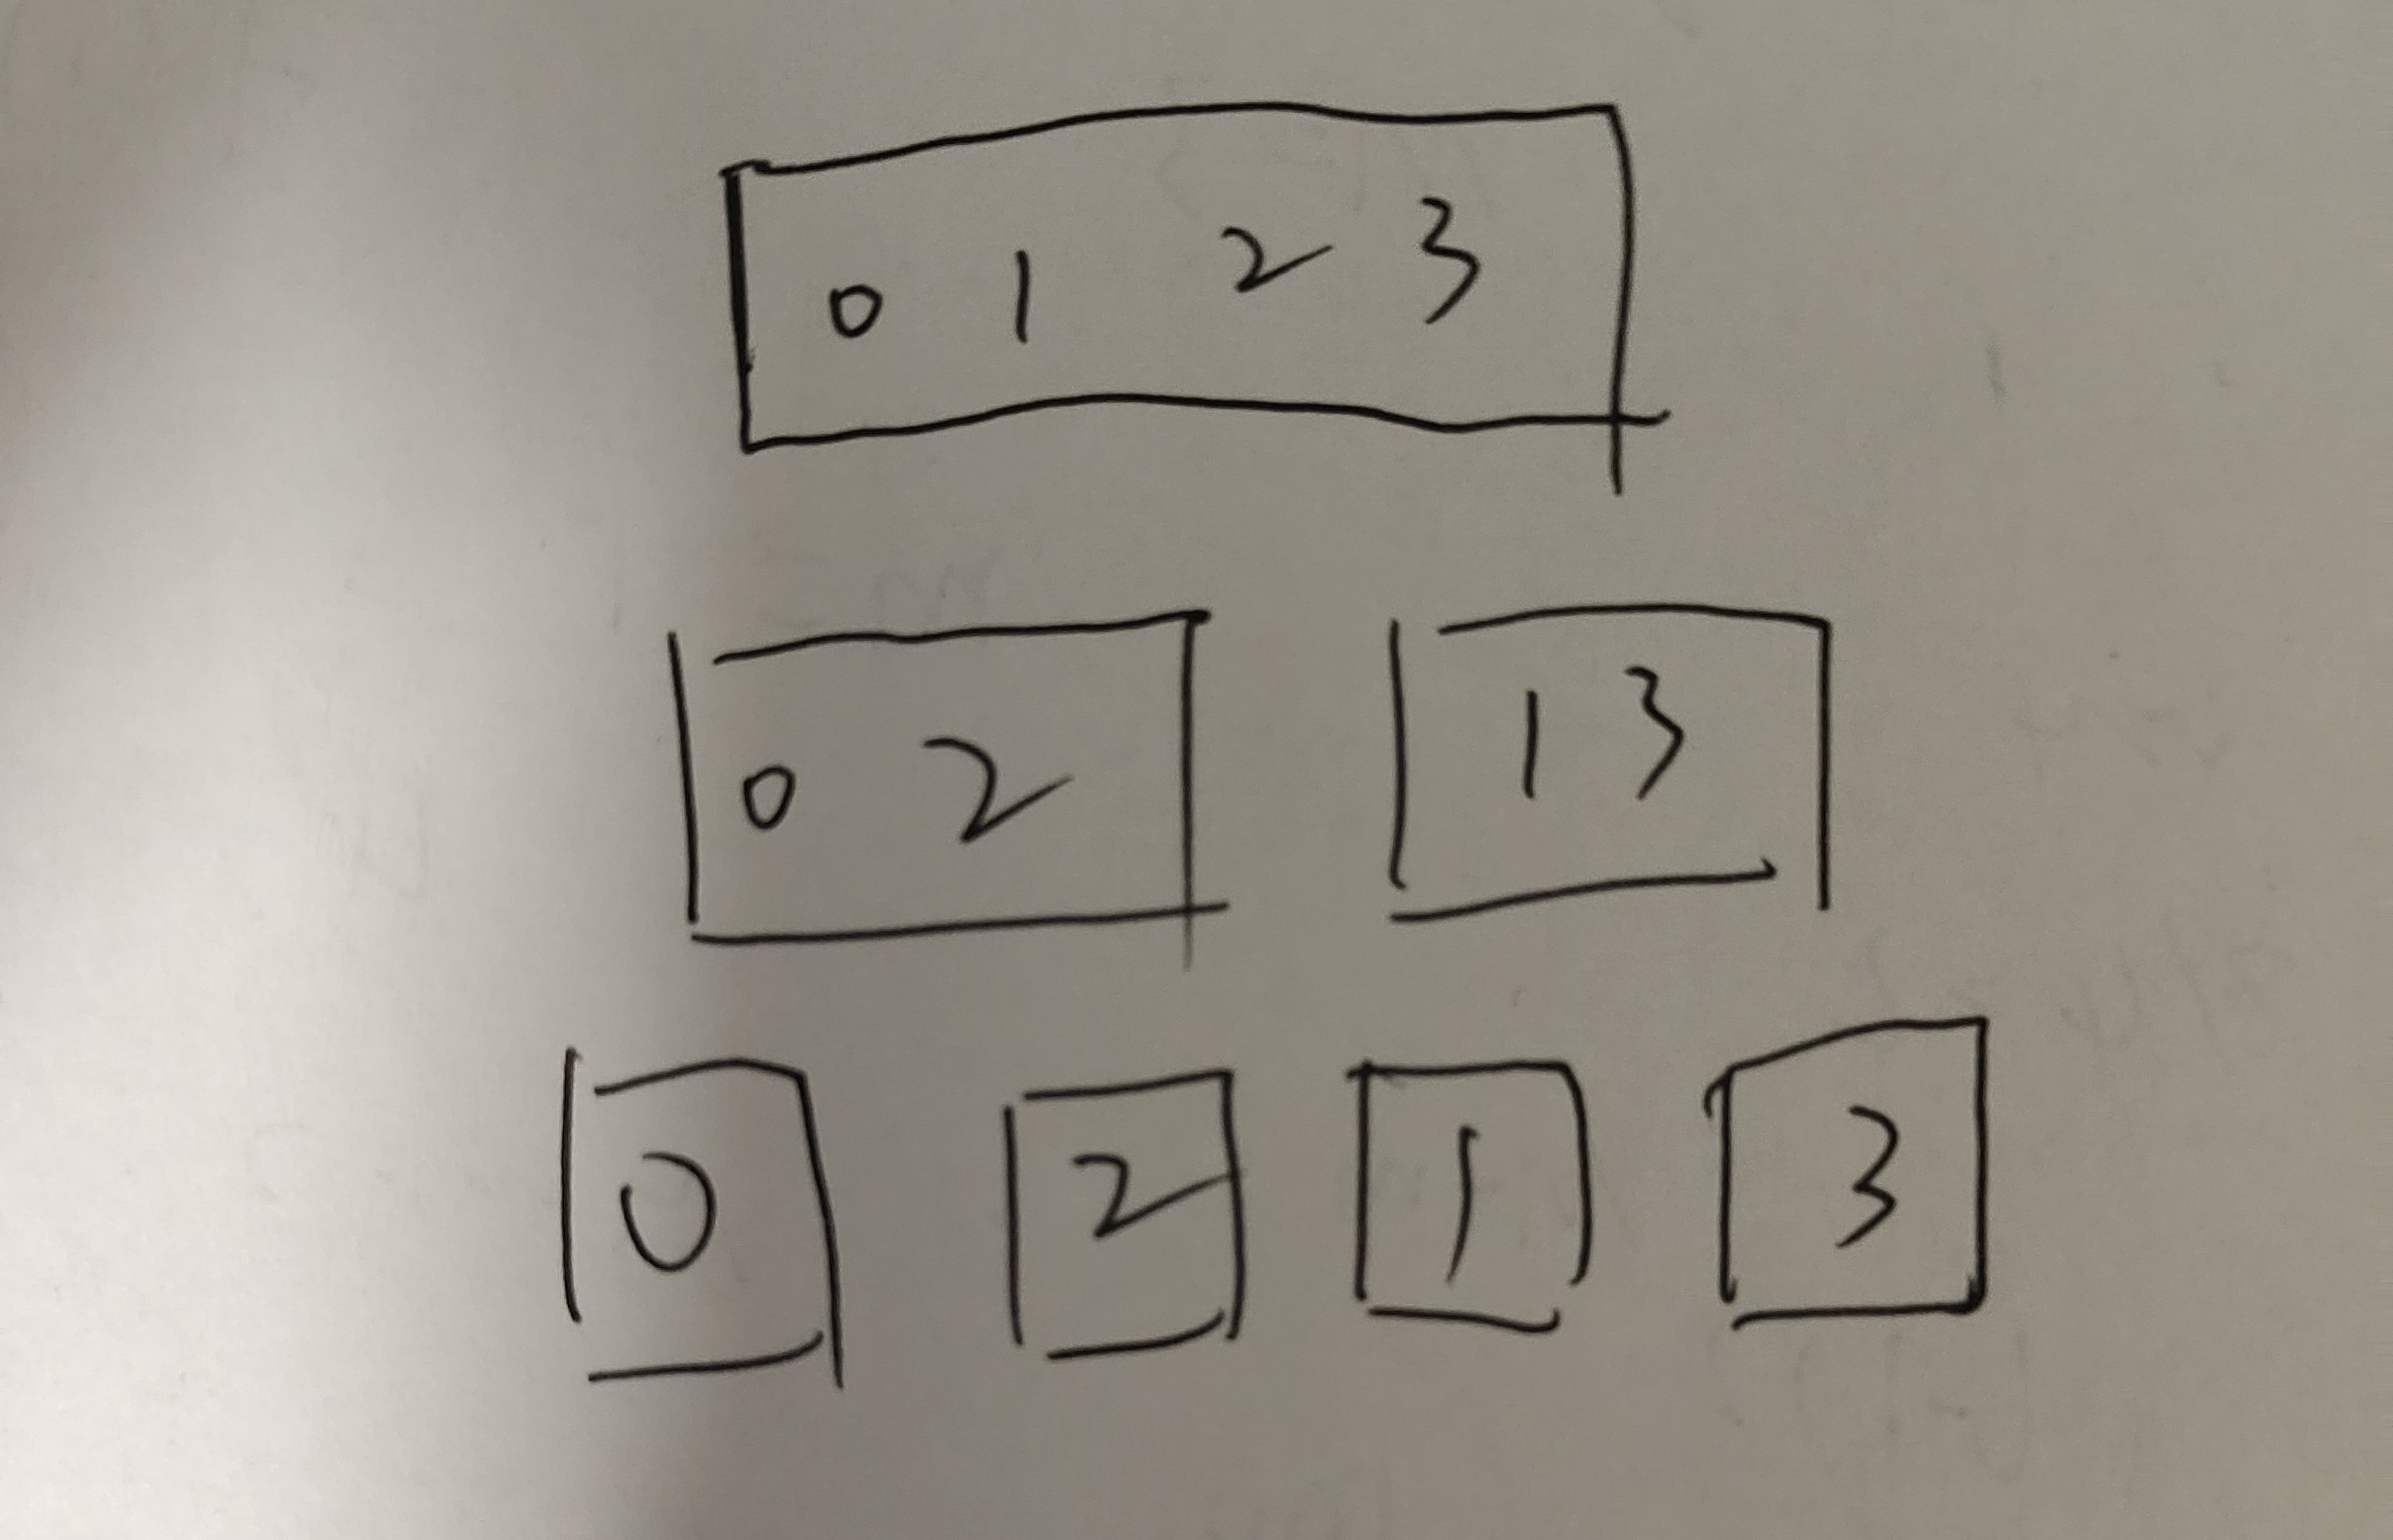 0 1 2 3
0 2 1 3
0 2 1 3